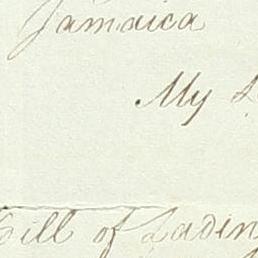 Jamaica
My
Bill of Lading